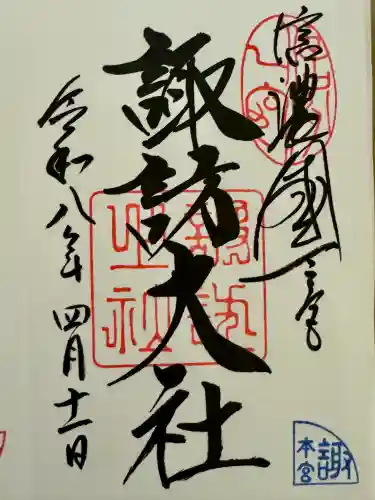 信濃國一之宮
諏訪大社
令和八年四月十一日
諏訪大社
諏
本宮